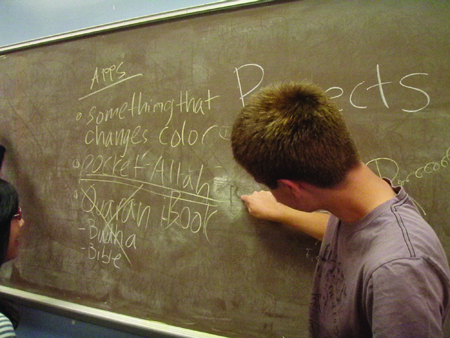 Apps
something that
changes color
pocket Allah
Quran Book
- Budha
- Bible
P ects